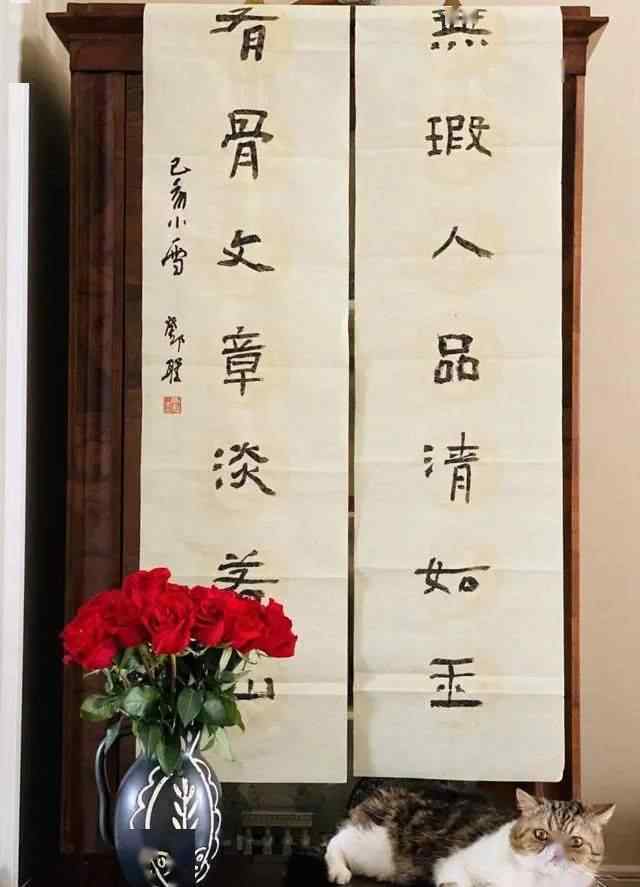 無瑕人品清如玉
有骨文章淡若山
己亥小雪 鄧